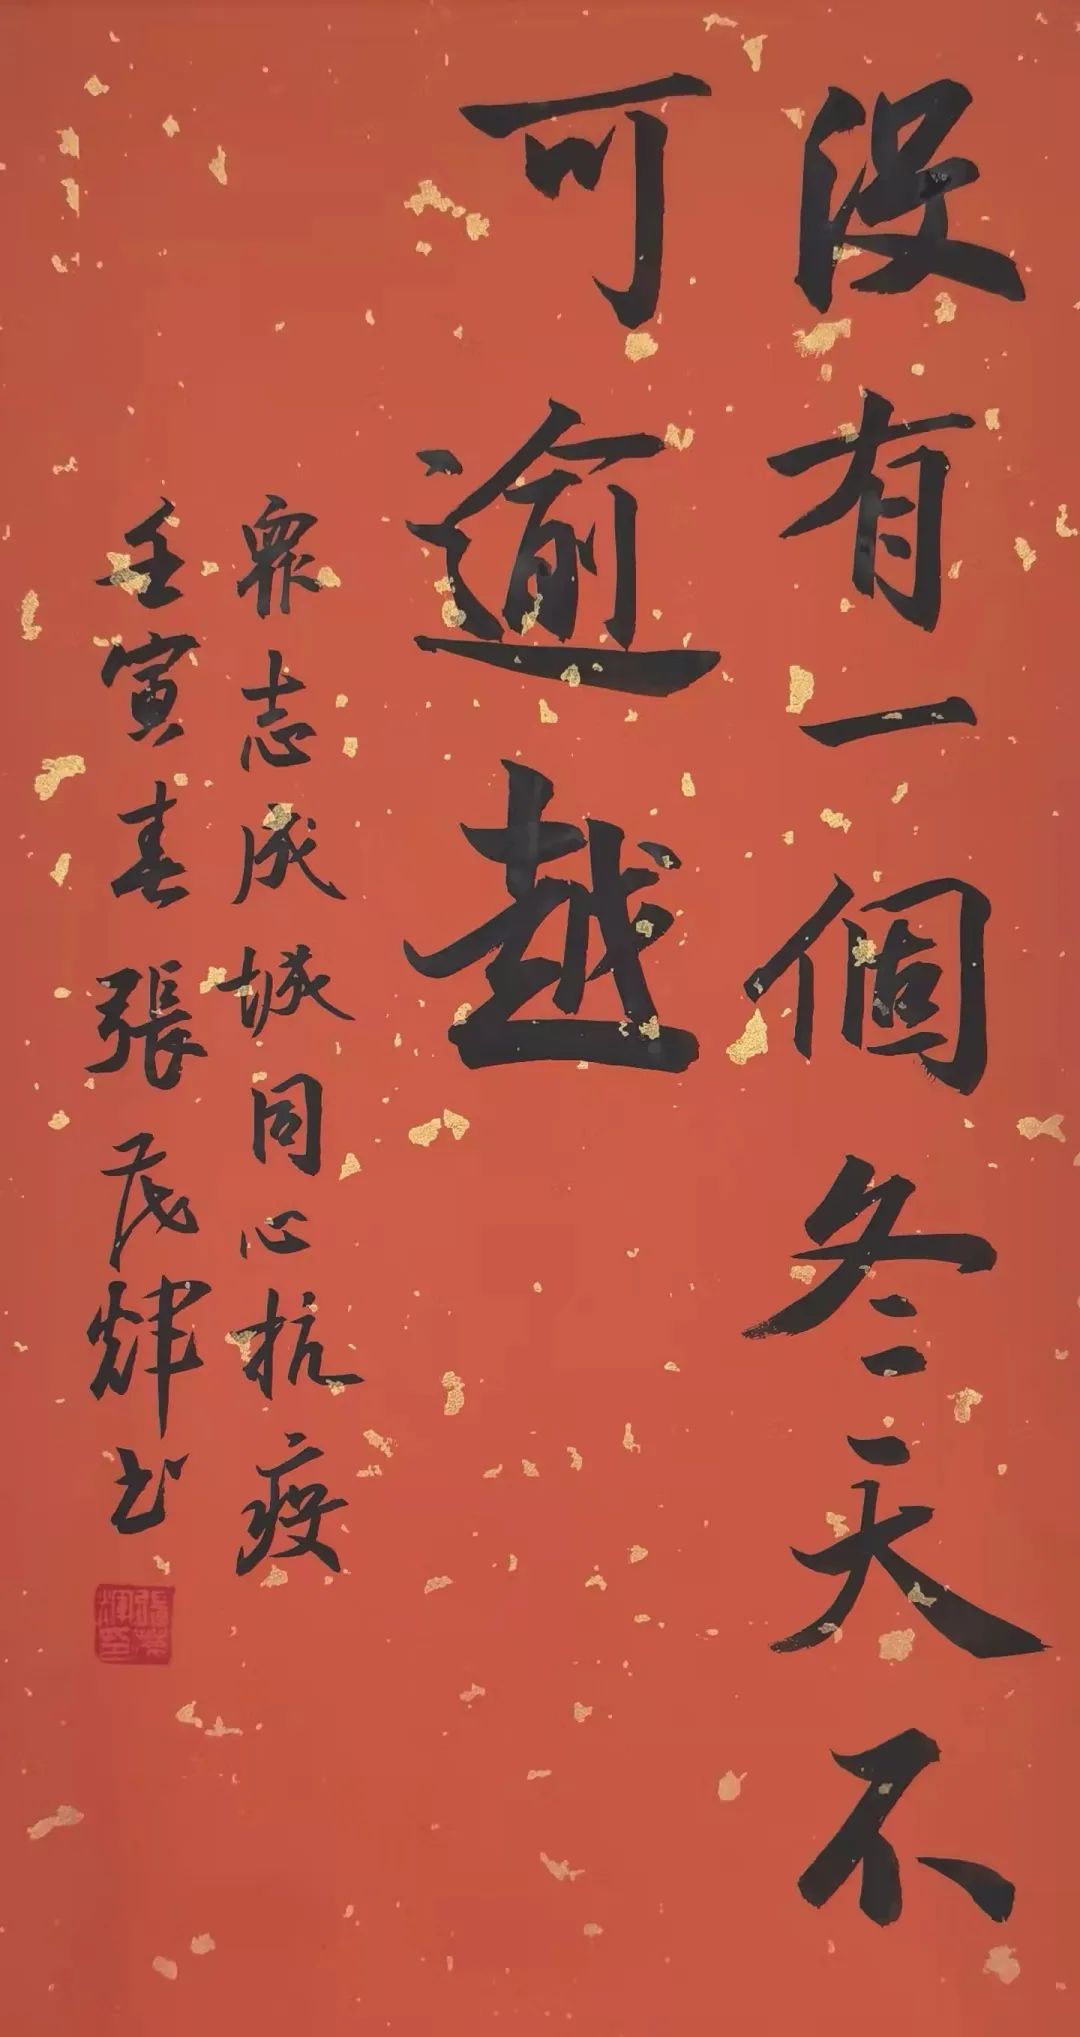 没有一個冬天不
可逾越
眾志成城同心抗疫
壬寅春張茂煒书
張茂
煒印